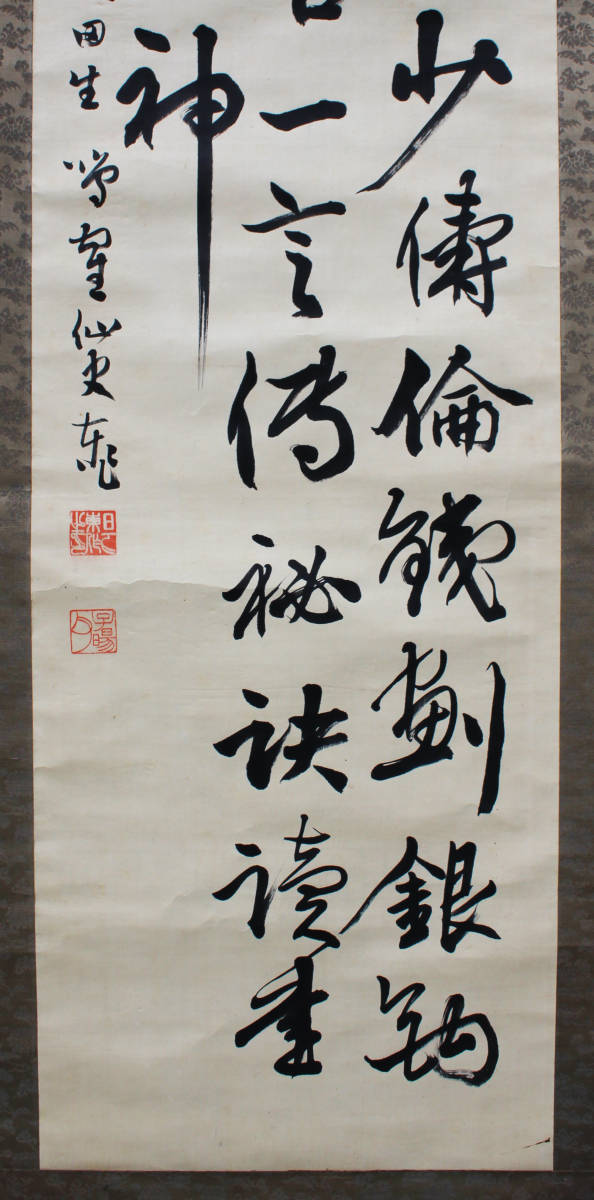 少儔倫鐵劃銀鈎
一言傳秘訣讀書
神
田生 鳴鶴仙史東作